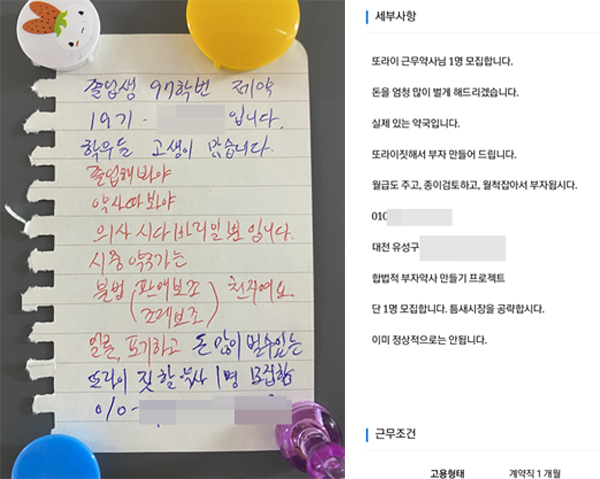 졸업생 97학번 제약
19기 - 입니다.
학우들 고생이 많습니다.
졸업해봐야
약사따봐야
의사 시다바리일뿐 입니다.
시중 약국가는
불법 (판매보조 조제보조) 천지예요
포기하고 돈 많이 벌수있는
또라이 짓 할 약사 1명 모집함
010-
세부사항
또라이 근무약사님 1명 모집합니다.
돈을 엄청 많이 벌게 해드리겠습니다.
실제 있는 약국입니다.
또라이짓해서 부자 만들어 드립니다.
월급도 주고, 종이검토하고, 월척잡아서 부자됩시다.
010
대전 유성구
합법적 부자약사 만들기 프로젝트
단 1명 모집합니다. 틈새시장을 공략합시다.
이미 정상적으로는 안됩니다.
근무조건
고용형태 계약직 1개월